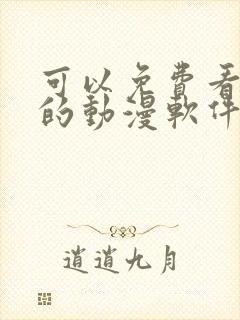 可以免費看
的動漫軟件
逍逍九月